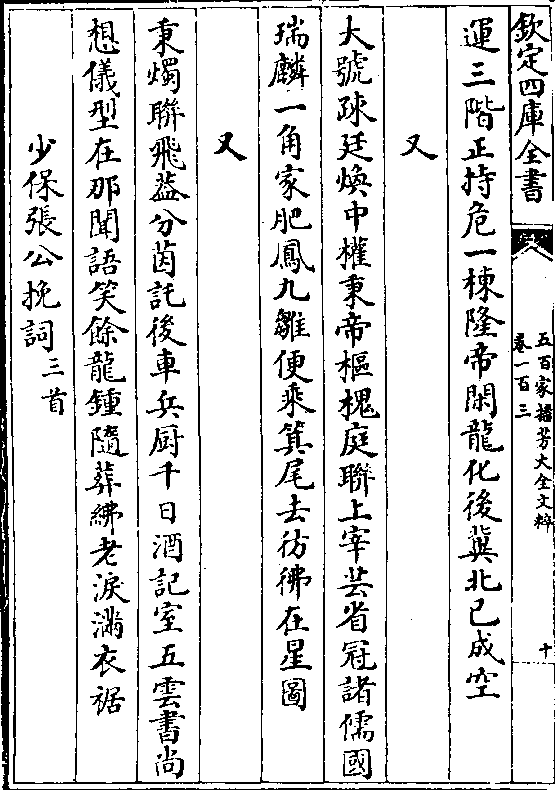 欽定四庫全書
五百家播芳大全文粹
卷一百三
十
運三階正持危一棟隆帝閑龍化後冀北已成空
又
大號疎廷煥中權秉帝樞槐庭聯上宰芸省冠諸儒國
瑞麟一角家肥鳳九雛便乘箕尾去彷彿在星圖
又
秉燭聯飛葢分茵託後車兵厨千日酒記室五雲書尚
想儀型在那聞語笑餘龍鍾隨葬紼老淚滿衣裾
少保張公挽詞三首